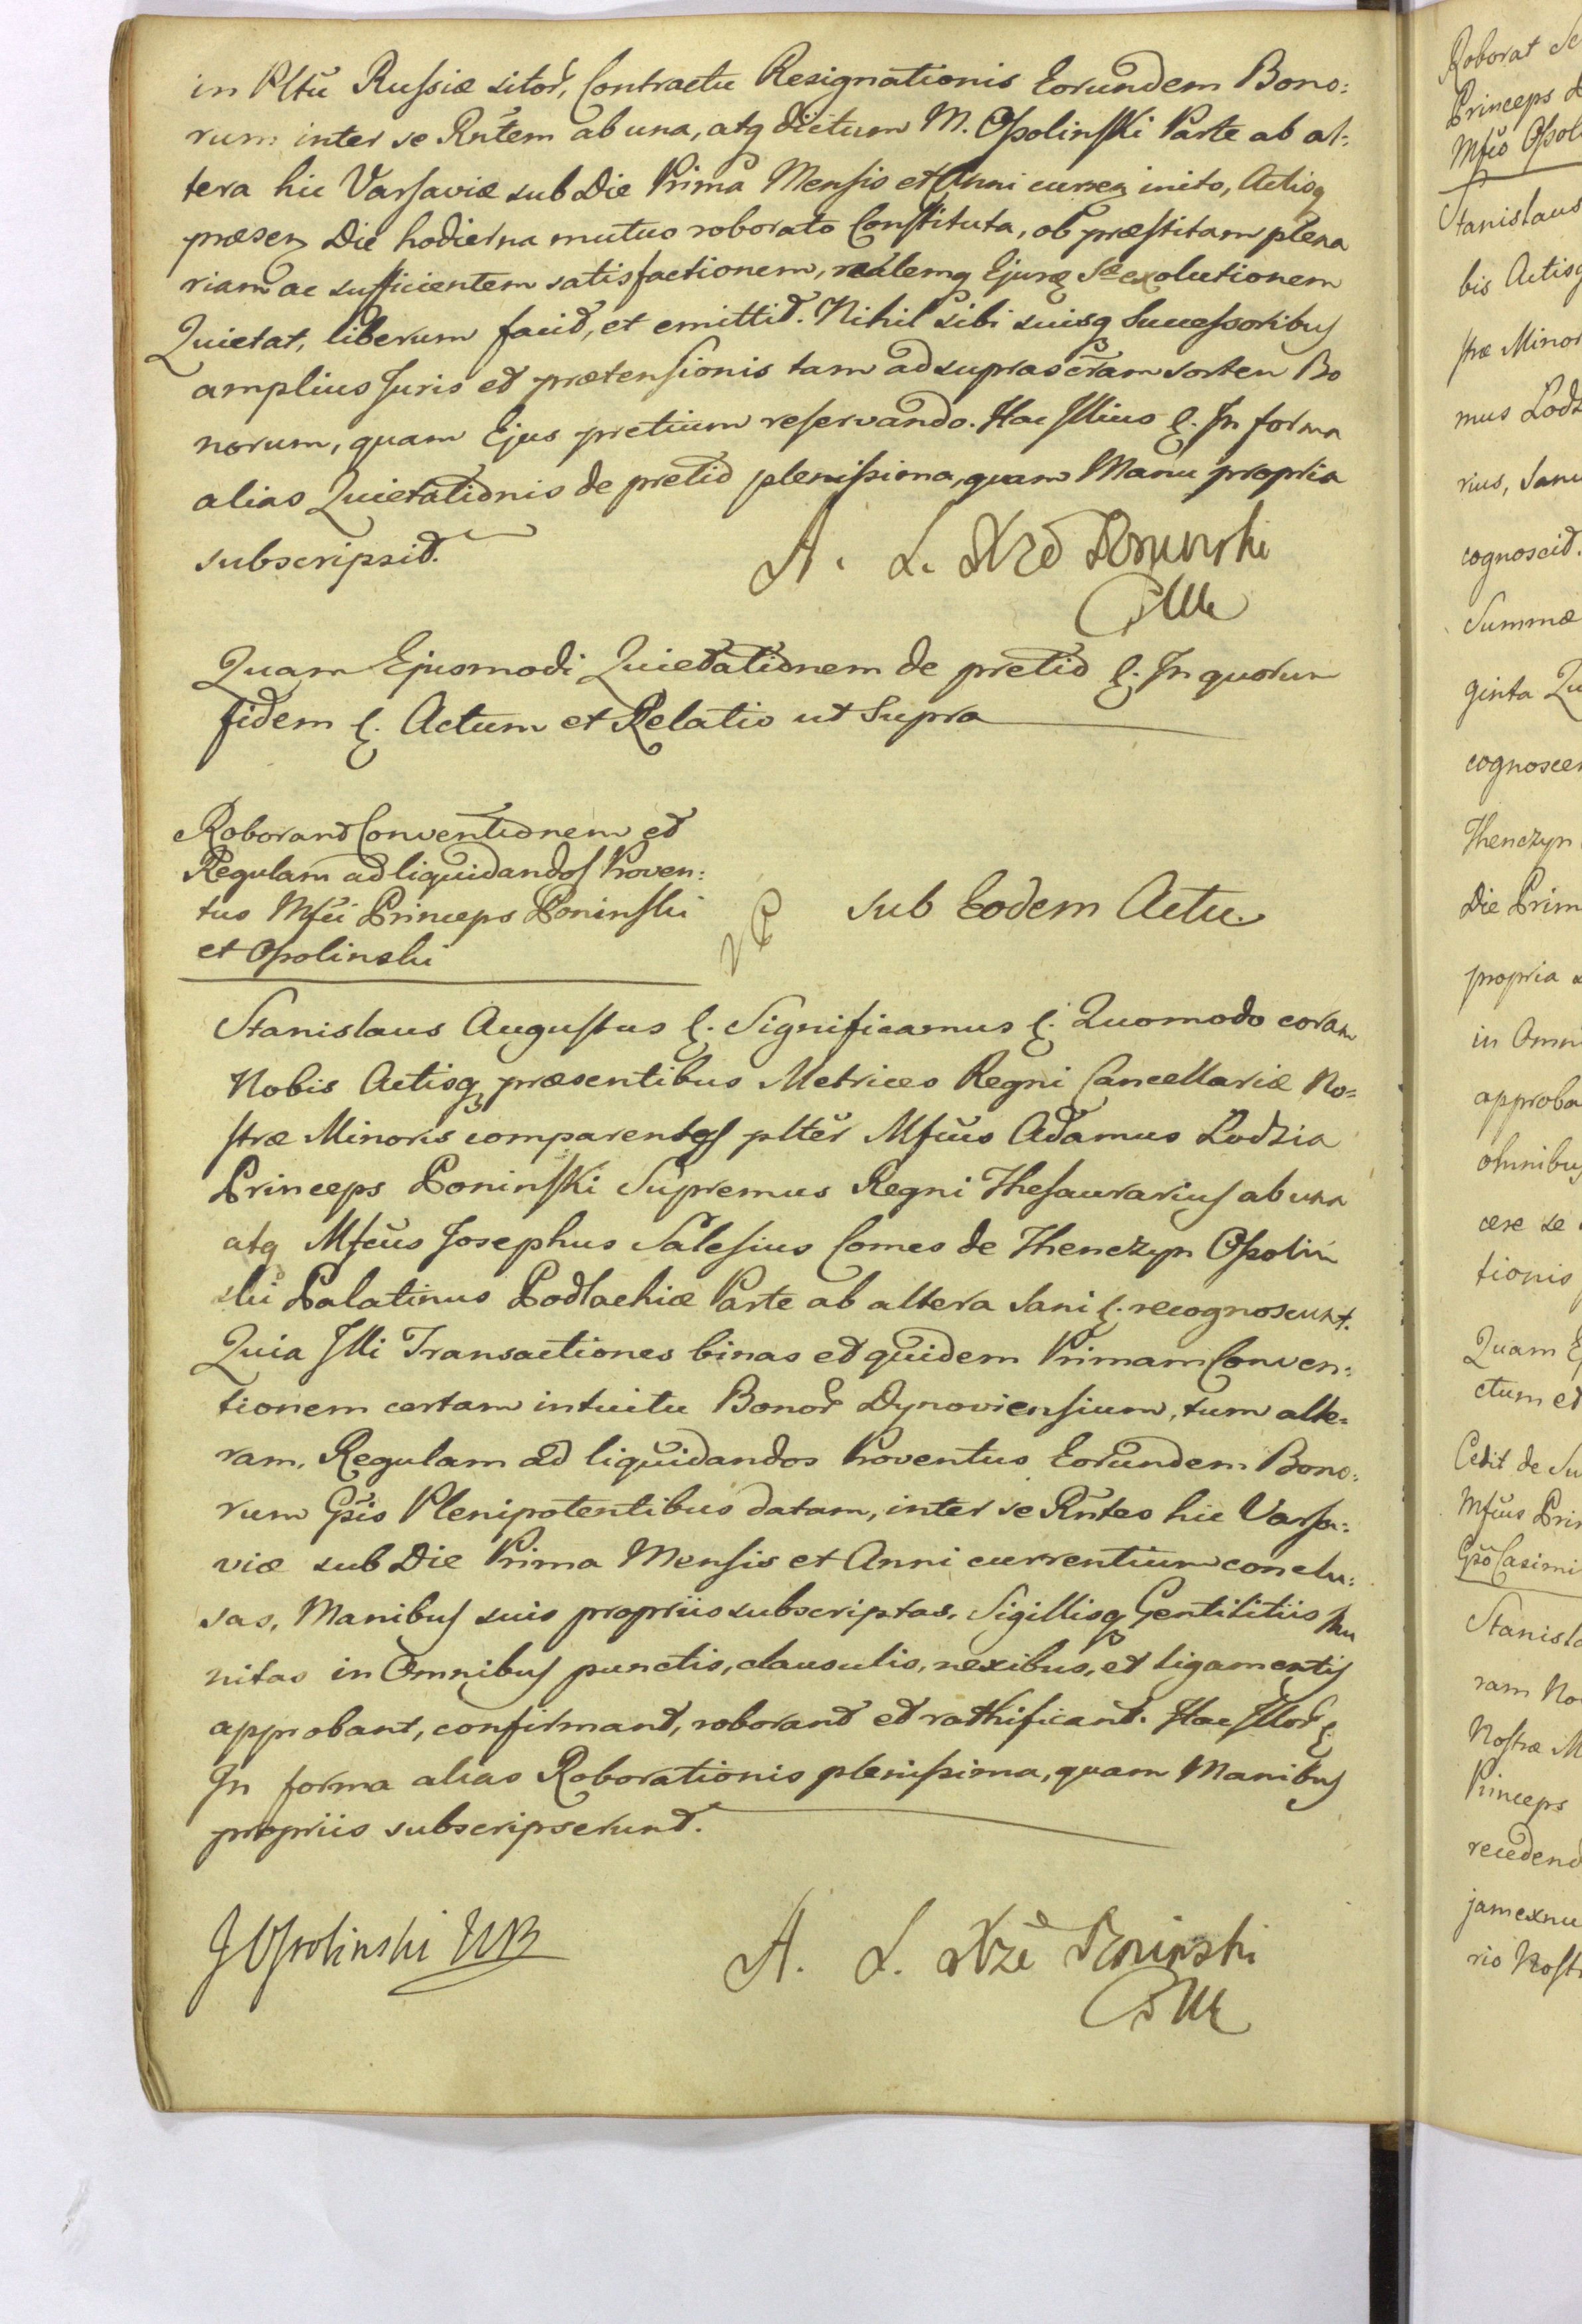 in Pltũ Russiæ sitor̃, Contractu Resignationis Eorundem Bono:
rum inter se Rñtem ab una, atq dictum M. Ossolinski Parte ab al:
tera hic Varsaviæ sub Die Prima Mensis et Anni curren inito, Actisq
præsen Die hodierna mutuo roborato Constituta, ob præstitam plena
riam ac sufficientem satisfactionem, realemq Ejusq Sæ exolutionem
Quietat, liberum facit, et emittit. Nihil sibi suisq Successoribus
amplius Juris et prætensionis tam ad suprascr̃am sortem Bo
norum, quam Ejus pretium reservando. Hac Illius &. In forma
alias Quietationis de pretio plenissima, quam Manu propria
subscripsit.
A. L. Xże Poninski
Quam Ejusmodi Quietationem de pretio &. In quorum
fidem &. Actum et Relatio ut Supra
Roborant Conventionem et
Regulam ad liquidandos Proven:
tus Mfci Princeps Poninski
et Ossolinski
Sub Eodem Actu.
Stanislaus Augustus &. Significamus &. Quomodo coram
Nobis Actisq præsentibus Metrices Regni Cancellariæ No=
stræ Minoris comparentes plter̃ Mfcũs Adamus Lodzia
Princeps Poninski Supremus Regni Thesaurarius ab una
atq Mfcũs Josephus Salesius Comes de Thenczyn Ossolin
ski Palatinus Podlachiæ Parte ab altera Sani &. recognoscunt.
Quia Illi Transactiones binas et quidem Primam Conven:
tionem certam intuitu Bonor̃ Dynoviensium, tum alte=
ram, Regulam ad liquidandos Proventus Eorundem Bono:
rum Gsis Plenipotentibus datam, inter se Rñtes hic Varsa:
viæ sub Die Prima Mensis et Anni currentium conclu:
sas, Manibus suis propriis subscriptas, Sigillisq Gentilitiis mu
nitas in Omnibus punctis, clausulis, nexibus, et ligamentis
approbant, confirmant, roborant et rathificant. Hac Illor̃ &.
In forma alias Roborationis plenissima, quam Manibus
propriis subscripserunt.
J Ossolinski WP
A. L. Xże Poninski
Roborat
Princeps
Mfcô Ossol
Stanislaus
bis Actisq
stræ Minor
mus Lodz
rius, Sanu
cognoscit.
Summæ
ginta Qu
cognoscen
Thenczyn
Die Prim
propria
in Omn
approba
omnibus
ere se
tionis
Quam E
ctum et
Cedit de Su
Mfcũs Prin
Gsô Casimi
Stanisla
ram No
Nostræ M
Princeps
recedend
jam exnu
rio Nostr